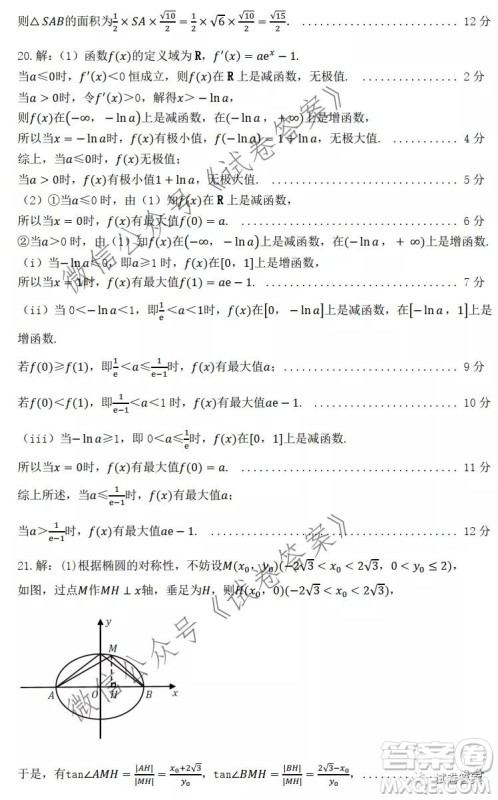 则△SAB的面积为1/2×SA×√10/2=1/2×√6×√10/2=√15/2. 12 分
20. 解：(1) 函数f(x)的定义域为 R，f′(x)=aeˣ−1.
当a⩽0时，f′(x)<0 恒成立，则f(x)在 R 上是减函数，无极值. 2 分
当a>0时，令f′(x)>0，解得x>−ln a，
则f(x)在(−∞，−ln a)上是减函数，在(−ln a，+∞)上是增函数，
所以当x=−ln a时，f(x)有极小值，f(−ln a)=1+ln a，无极大值. 4 分
综上，当a⩽0时，f(x)无极值；
当a>0时，f(x)有极小值1+ln a，无极大值. 5 分
(2) ①当a⩽0 时，由 (1) 知f(x)在 R 上是减函数，
所以当x=0时，f(x)有最大值f(0)=a. 6 分
②当a>0 时，由 (1) 知f(x)在(−∞，−ln a)上是减函数，在(−ln a，+∞)上是增函数.
(i) 当−ln a⩽0，即a⩾1 时，f(x)在[0，1]上是增函数，
所以当x=1时，f(x)有最大值f(1)=ae−1. 7 分
(ii) 当 0<−ln a<1，即1/e<a<1时，f(x)在[0，−ln a]上是减函数，在[−ln a，1]上是
增函数.
若f(0)⩾f(1)，即1/e<a⩽1/(e−1)时，f(x)有最大值a； 9 分
若f(0)<f(1)，即1/(e−1)<a<1 时，f(x)有最大值ae−1. 10 分
(iii) 当−ln a⩾1，即 0<a⩽1/e时，f(x)在[0，1]上是减函数.
所以当x=0时，f(x)有最大值f(0)=a. 11 分
综上所述，当a⩽1/(e−1)时，f(x)有最大值a；
当a>1/(e−1)时，f(x)有最大值ae−1. 12 分
21. 解：(1)根据椭圆的对称性，不妨设M(x₀，y₀)(−2√3<x₀<2√3，0<y₀⩽2)，
如图，过点M作MH⊥x轴，垂足为H，则H(x₀，0)(−2√3<x₀<2√3)，
y
M
A O H B x
于是，有tan∠AMH=|AH|/|MH|=(x₀+2√3)/y₀，tan∠BMH=|BH|/|MH|=(2√3−x₀)/y₀，
微信公众号《试卷答案》
微信公众号《试卷答案》
试卷答案